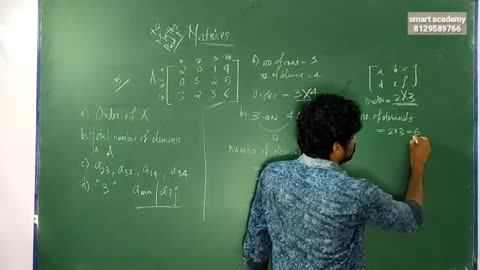 smart academy
8129589766
Matrices
A = [ 2 0 1 4
0 3 2 5
3 2 3 6 ]
a) Order of X
b) Total number of elements
in A
c) a23, a32, a14, a34
d) "3"
amn | aij
a) no. of rows = 3
Order = 3×4
b) 3 rows 4
12
number of elements
[ a b c
d e f ]
order = 2×3
no. of elements
= 2×3 = 6